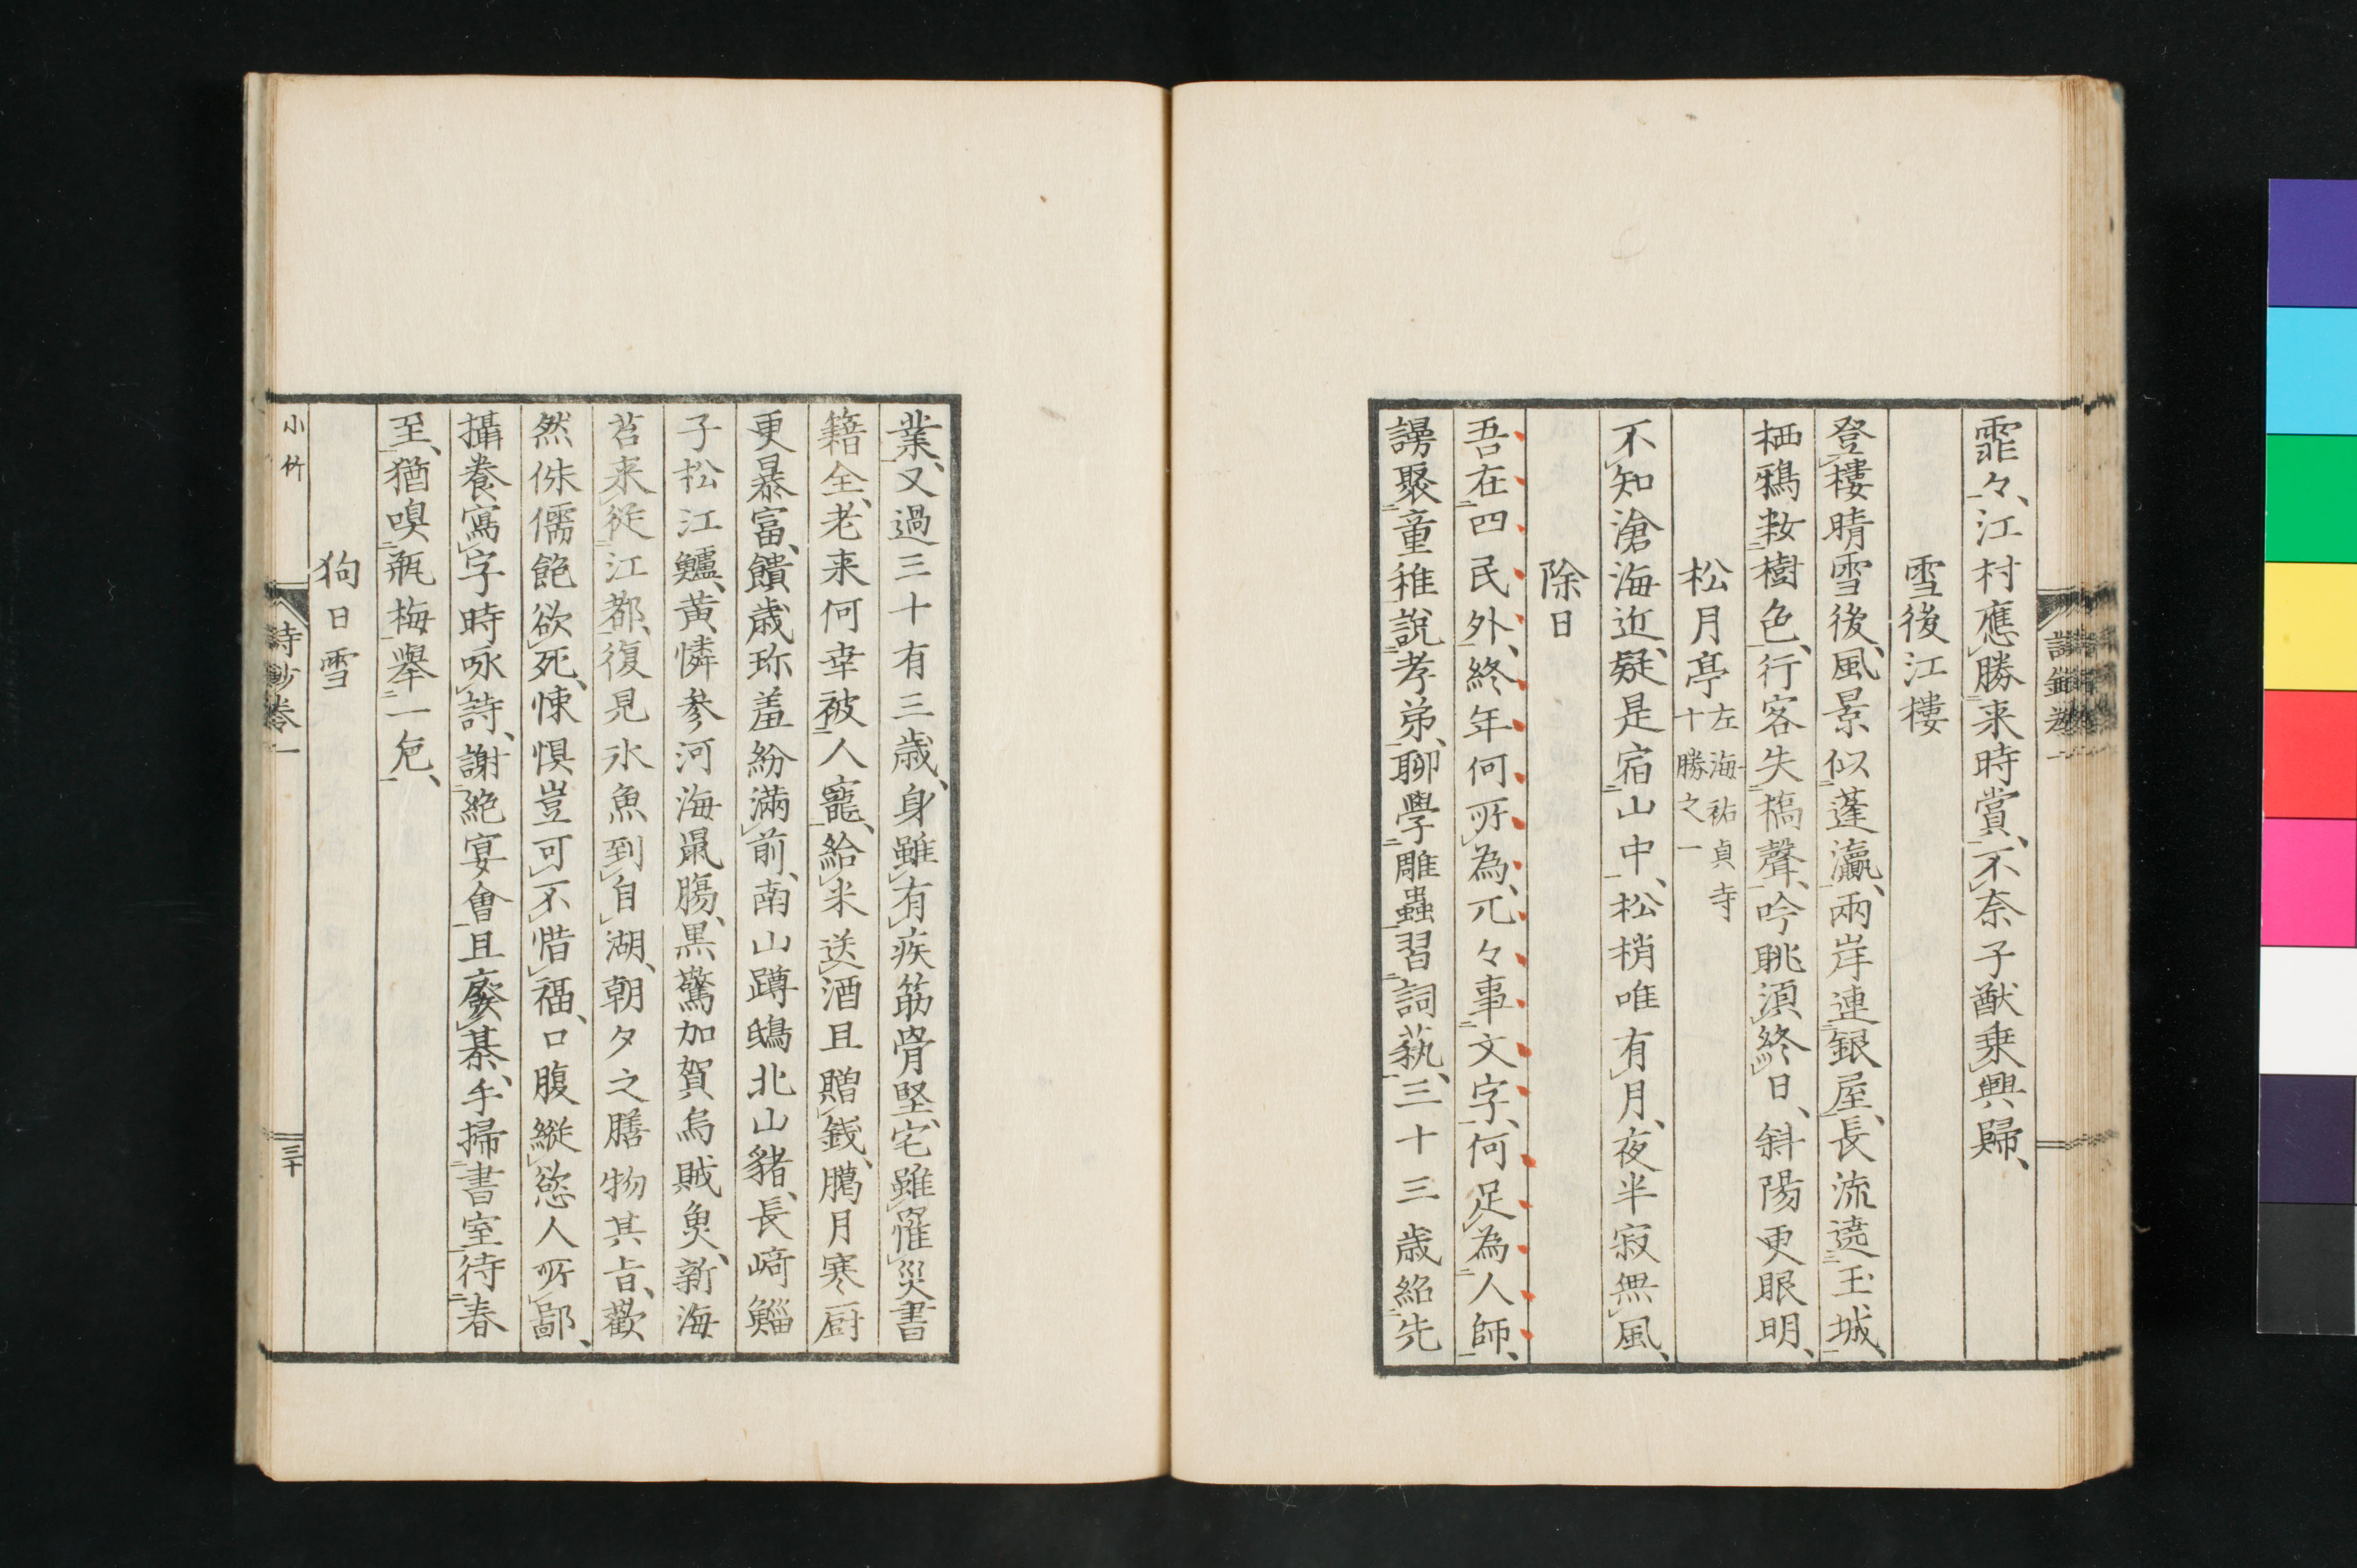 霏々、江村應勝来時賞、不奈子猷乗興歸、
雪後江樓
登樓晴雪後、風景似蓬瀛、兩岸連銀屋、長流遶玉城、
栖鴉敉樹色、行客失橋聲、吟眺須終日、斜陽更眼明、
松月亭 左海祐貞寺
十勝之一
不知滄海近、疑是宿山中、松梢唯有月、夜半寂無風、
除日
吾在四民外、終年何所為、兀々事文字、何足為人師、
謾聚童稚說孝弟、聊學雕蟲習詞藝、三十三歲紹先
業、又過三十有三歲、身雖有疾筋骨堅、宅雖罹災書
籍全、老来何幸被人寵、給米送酒且贈錢、臈月寒厨
更暴富、饋歲珎羞紛滿前、南山蹲鴟北山豬、長﨑鯔
子松江鱸、黄憐參河海鼠膓、黒驚加賀烏賊魚、新海
苔来從江都、復見氷魚到自湖、朝夕之膳物其旨、歡
然侏儒飽欲死、悚惧豈可不惜福、口腹縱慾人所鄙、
攝養寫字時咏詩、謝絶宴會且廢棊、手掃書室待春
至、猶嗅瓶梅舉一卮、
狗日雪
小竹
詩鈔卷一
三十